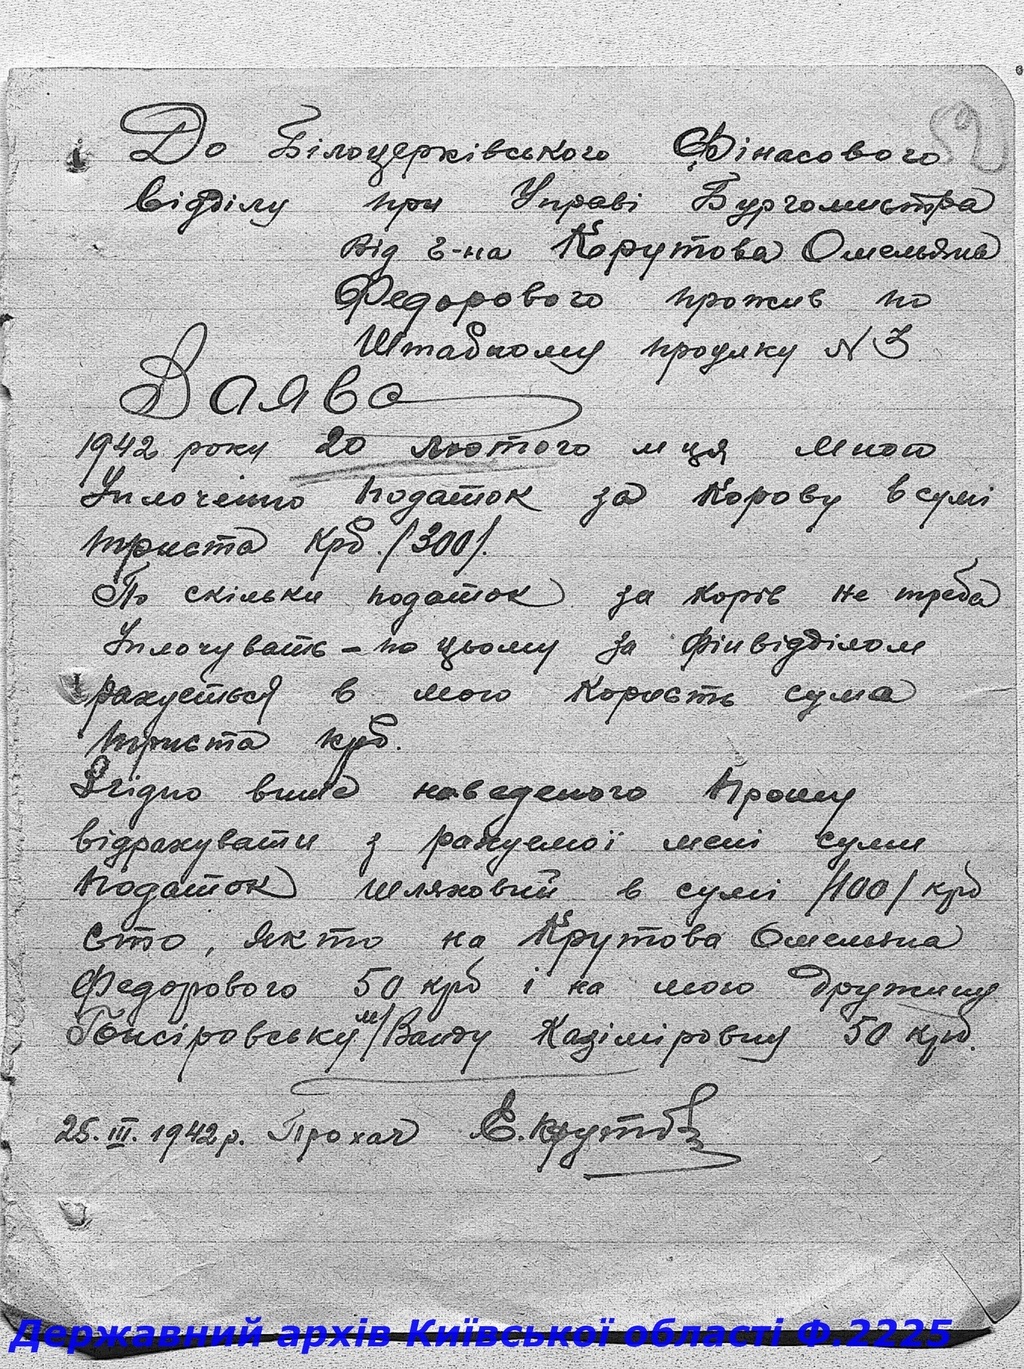 59
До Білоцерківського Фінасового
Відділу при Управі Бургомистра
Від г-на Крутова Омельяна
Федорового прожив по
Штабному проулку N 3
Заява
1942 року 20 лютого м ця мною
Уплочено податок за корову в сумі
триста крб. /300/.
По скільки податок за корів не треба
Уплочувать – по цьому за фінвідділом
рахується в мою користь сума
триста крб.
Згідно више наведеного прошу
відрахувати з рахуємої мені сумм
податок шляховий в сумі /100/ крб
сто, як то на Крутова Омеляна
Федорового 50 крб і на мою дружину
Ванду Казіміровну 50 крб.
25.III.1942 р. Прохач Е. Крутов
Державний архів Київської області Ф.2225